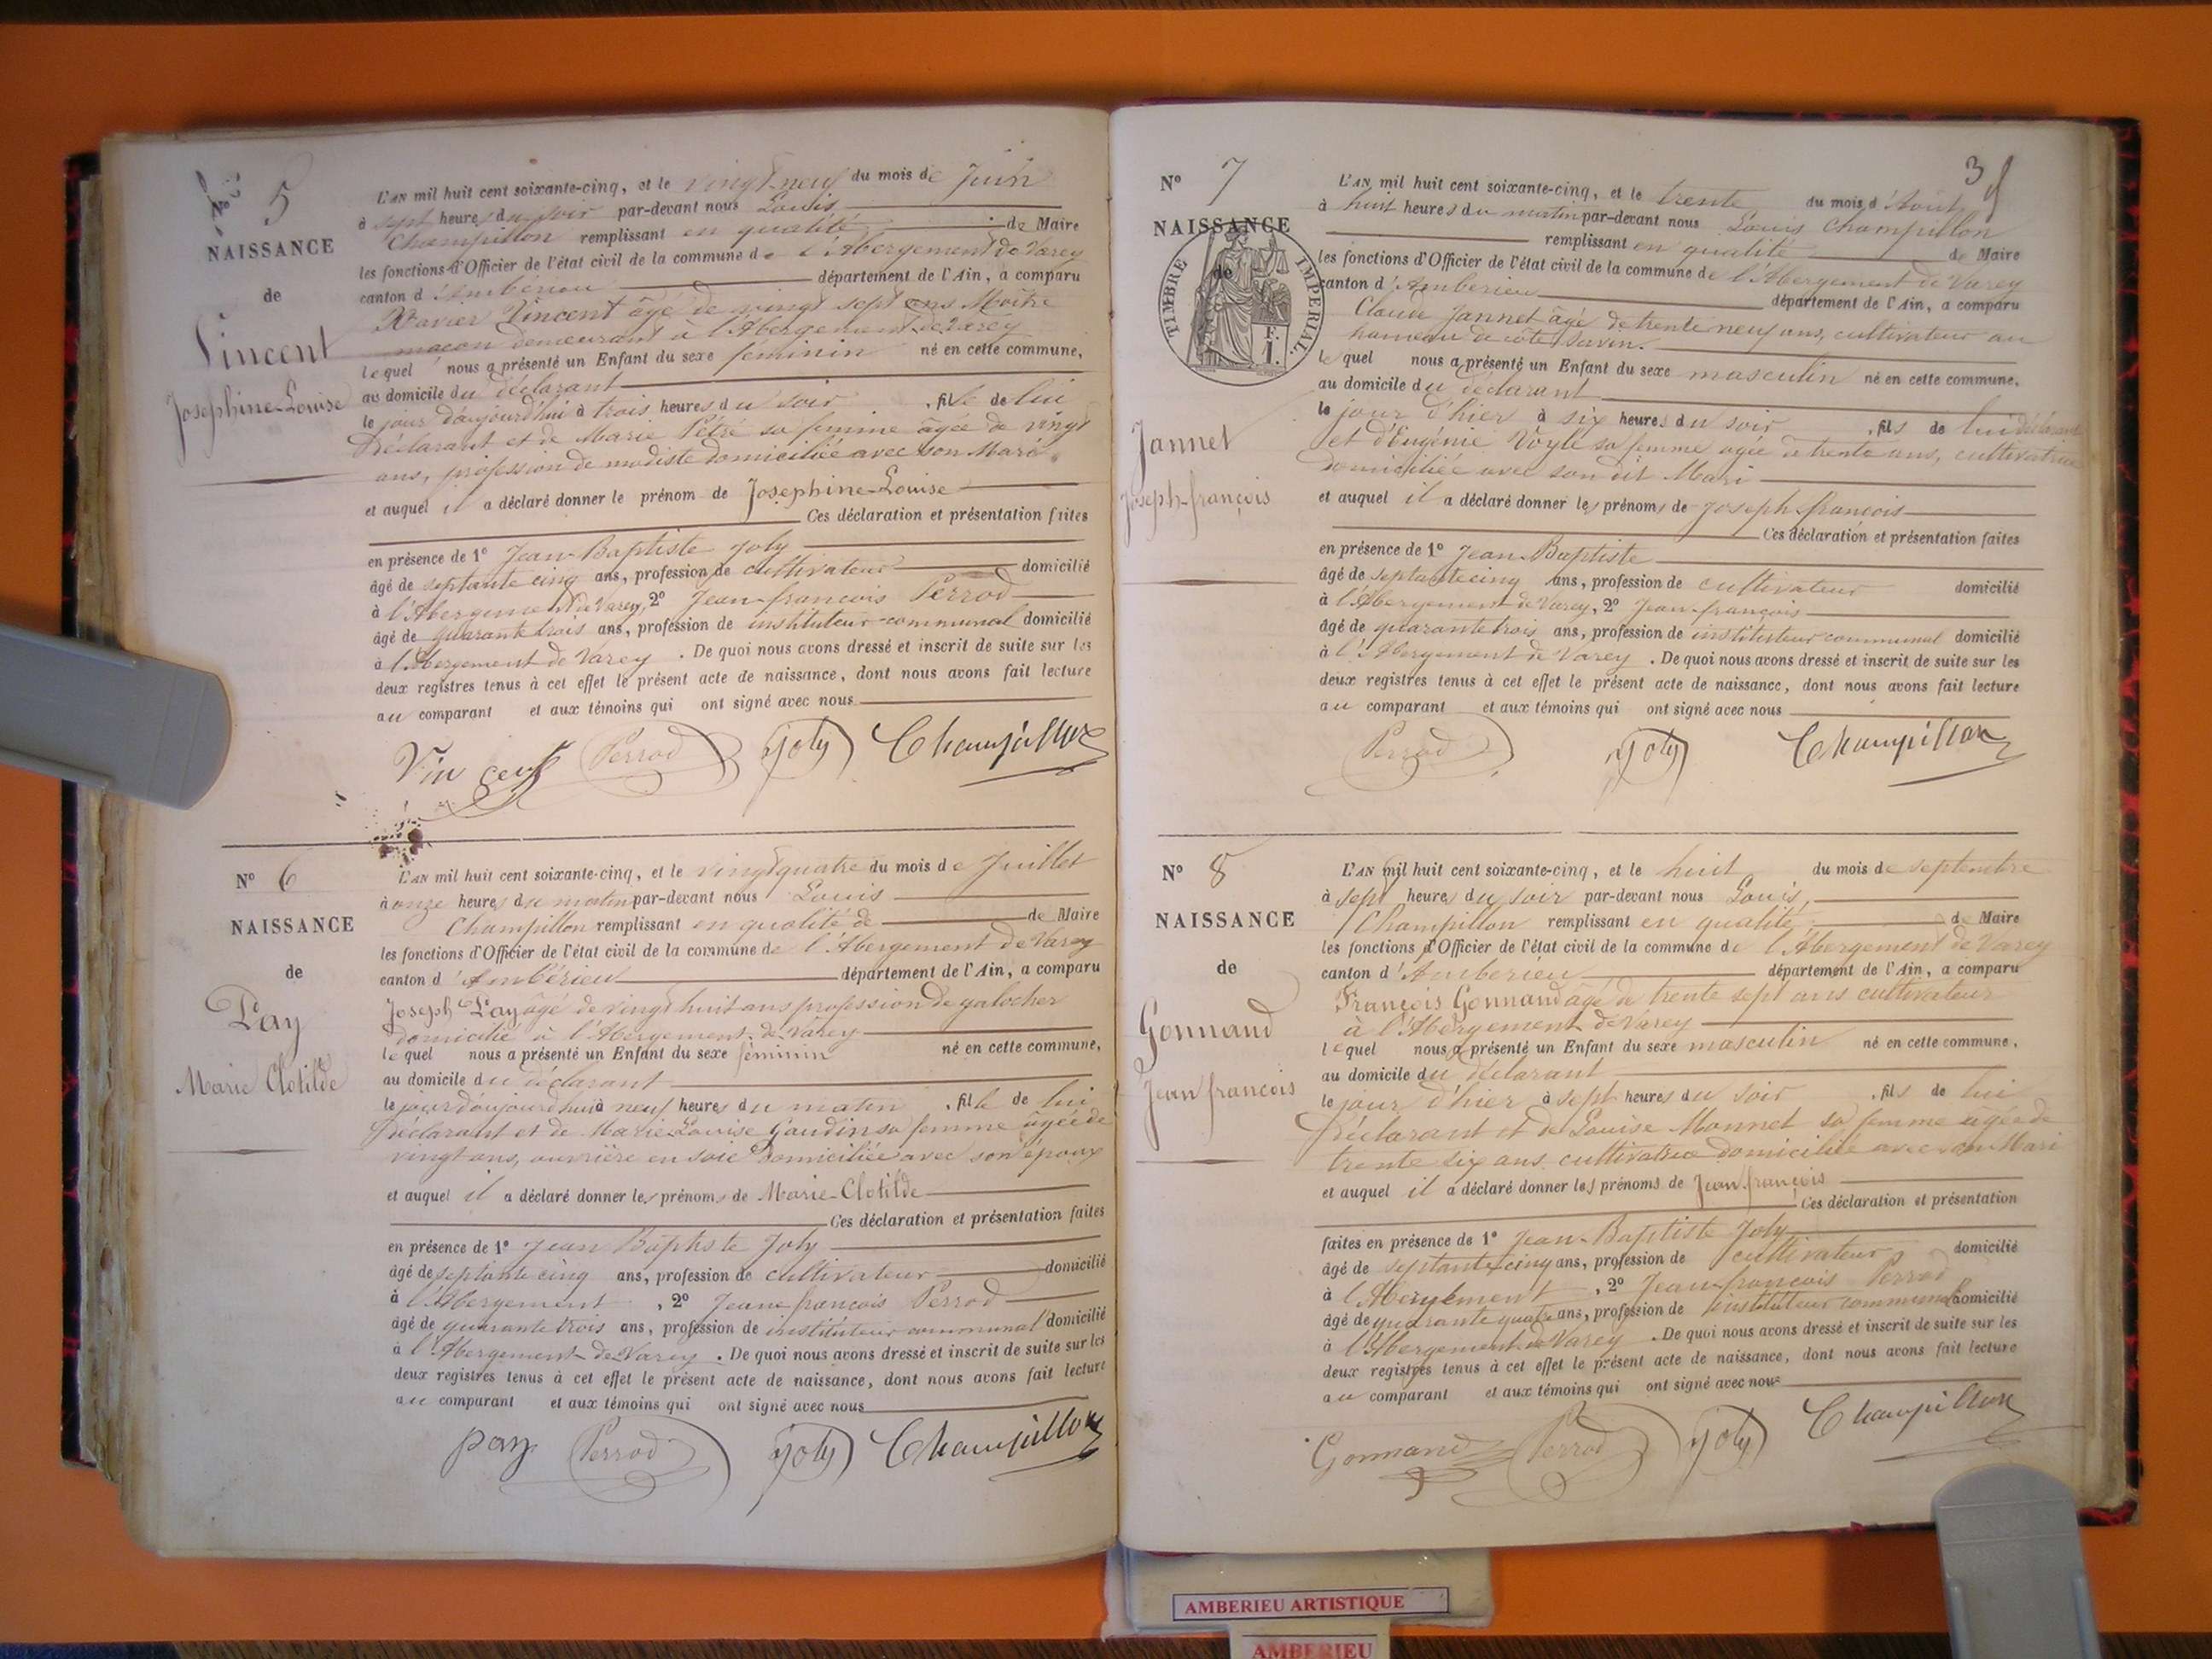 Nº 5
NAISSANCE
de
Vincent
Josephine-Louise
L'AN mil huit cent soixante-cinq, et le vingt-neuf du mois de Juin
à sept heures du soir par-devant nous Louis
Champillon remplissant en qualité de Maire
les fonctions d'Officier de l'état civil de la commune de l'Abergement de Varey
canton d'Ambérieu département de l'Ain, a comparu
Xavier Vincent âgé de vingt sept ans Maître
maçon demeurant à l'Abergement de Varey
lequel nous a présenté un Enfant du sexe féminin né en cette commune,
au domicile du déclarant
le jour d'aujourd'hui à trois heures du soir, fille de lui
Déclarant et de Marie Pétré sa femme âgée de vingt
ans, profession de modiste domiciliée avec son Mari
et auquel il a déclaré donner le prénom de Josephine-Louise
Ces déclaration et présentation faites
en présence de 1º Jean-Baptiste Joly
âgé de septante cinq ans, profession de cultivateur domicilié
à l'Abergement de Varey, 2º Jean-francois Perrod
âgé de quarante trois ans, profession de instituteur communal domicilié
à l'Abergement de Varey. De quoi nous avons dressé et inscrit de suite sur les
deux registres tenus à cet effet le présent acte de naissance, dont nous avons fait lecture
au comparant et aux témoins qui ont signé avec nous
Vincent Perrod Joly Champillon
Nº 6
NAISSANCE
de
Pay
Marie Clotilde
L'AN mil huit cent soixante-cinq, et le vingt quatre du mois de Juillet
à onze heures du matin par-devant nous Louis
Champillon remplissant en qualité de de Maire
les fonctions d'Officier de l'état civil de la commune de l'Abergement de Varey
canton d'Ambérieu département de l'Ain, a comparu
Joseph Pay âgé de vingt huit ans profession de galocher
domicilié à l'Abergement de Varey
lequel nous a présenté un Enfant du sexe féminin né en cette commune,
au domicile du déclarant
le jour d'aujourd'hui à neuf heures du matin, fille de lui
Déclarant et de Marie-Louise Gaudin sa femme âgée de
vingt ans, ouvrière en soie domiciliée avec son époux
et auquel il a déclaré donner les prénoms de Marie-Clotilde
Ces déclaration et présentation faites
en présence de 1º Jean Baptiste Joly
âgé de septante cinq ans, profession de cultivateur domicilié
à l'Abergement, 2º Jeane francois Perrod
âgé de quarante trois ans, profession de instituteur communal domicilié
à l'Abergement de Varey. De quoi nous avons dressé et inscrit de suite sur les
deux registres tenus à cet effet le présent acte de naissance, dont nous avons fait lecture
au comparant et aux témoins qui ont signé avec nous
pay Perrod Joly Champillon
3
Nº 7
NAISSANCE
de
TIMBRE IMPERIAL
F.
1.
Jannet
Joseph-françois
L'AN mil huit cent soixante-cinq, et le trente du mois d'Août
à huit heures du matin par-devant nous Louis Champillon
remplissant en qualité de Maire
les fonctions d'Officier de l'état civil de la commune de l'Abergement de Varey
canton d'Amberieu département de l'Ain, a comparu
Claude Jannet âgé de trente neuf ans, cultivateur au
hameau de côte Savin.
lequel nous a présenté un Enfant du sexe masculin né en cette commune,
au domicile du déclarant
le jour d'hier à six heures du soir, fils de lui déclarant
et d'Eugénie Voyle sa femme âgée de trente ans, cultivatrice
domiciliée avec son dit Mari
et auquel il a déclaré donner les prénoms de Joseph-francois
Ces déclaration et présentation faites
en présence de 1º Jean-Baptiste
âgé de septante cinq ans, profession de cultivateur domicilié
à l'Abergement de Varey, 2º Jean-françois
âgé de quarante trois ans, profession de instituteur communal domicilié
à l'Abergement de Varey. De quoi nous avons dressé et inscrit de suite sur les
deux registres tenus à cet effet le présent acte de naissance, dont nous avons fait lecture
au comparant et aux témoins qui ont signé avec nous
Perrod Joly Champillon
Nº 8
NAISSANCE
de
Gonnand
Jean françois
L'AN mil huit cent soixante-cinq, et le huit du mois de septembre
à sept heures du soir par-devant nous Louis
Champillon remplissant en qualité de Maire
les fonctions d'Officier de l'état civil de la commune de l'Abergement de Varey
canton d'Amberieu département de l'Ain, a comparu
François Gonnand âgé de trente sept ans cultivateur
à l'Abergement de Varey
lequel nous a présenté un Enfant du sexe masculin né en cette commune,
au domicile du déclarant
le jour d'hier à sept heures du soir, fils de lui
Déclarant et de Louise Monnet sa femme âgée de
trente six ans cultivatrice domiciliée avec son Mari
et auquel il a déclaré donner les prénoms de Jean françois
Ces déclaration et présentation
faites en présence de 1º Jean-Baptiste Joly
âgé de septante cinq ans, profession de cultivateur domicilié
à l'Abergement, 2º Jean-francois Perrod
âgé de quarante quatre ans, profession de instituteur communal domicilié
à l'Abergement de Varey. De quoi nous avons dressé et inscrit de suite sur les
deux registres tenus à cet effet le présent acte de naissance, dont nous avons fait lecture
au comparant et aux témoins qui ont signé avec nous
Gonnand Perrod Joly Champillon
AMBERIEU ARTISTIQUE
AMBERIEU